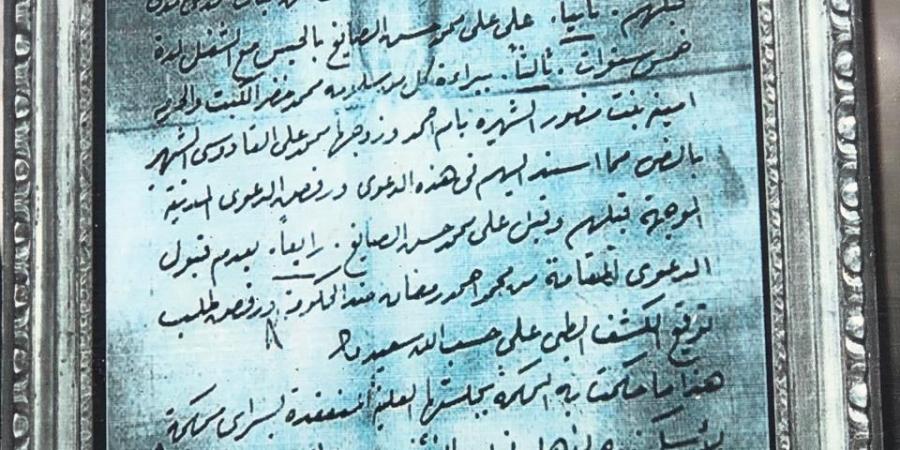 قبلهم. ثانياً. على على محمد حسن الصايغ بالحبس مع الشغل لمدة
خمس سنوات. ثالثاً. ببراءة كل من سلامه محمد خضر الكبت والحرمه
امينه بنت منصور الشهيره بام احمد وزوجها محمد على القادوسى الشهير
بالنص مما اسند اليهم فى هذه الدعوى ورفض الدعوى المدنية
الموجهة قبلهم وقبل على محمد حسن الصايغ. رابعاً. بعدم قبول
الدعوى المقامة من محمد احمد رمضان ضد الحكومة ورفض طلب
توقيع الكشف الطبى على حسب الله سعيد
هذا ما حكمت به المحكمة بجلستها العلنية المنعقدة بسراى محكمة